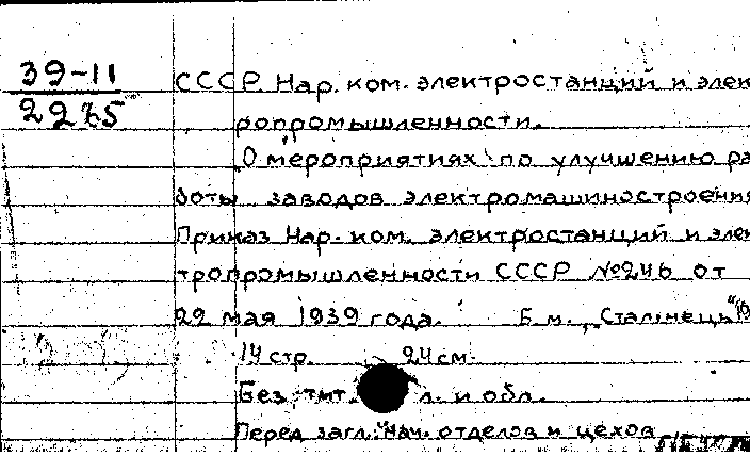 39-11
2275
СССР. Нар. ком. электростанций и элек
ропромышленности.
"О мероприятиях по улучшению ра
боты заводов электромашиностроения
Приказ Нар. ком. электростанций и элек
тропромышленности СССР №246 от
22 мая 1939 года. Б.м., "Сталінець"
14 стр. 24 см.
Без тит. л. и обл.
Перед загл.: Нач. отделов и цехов